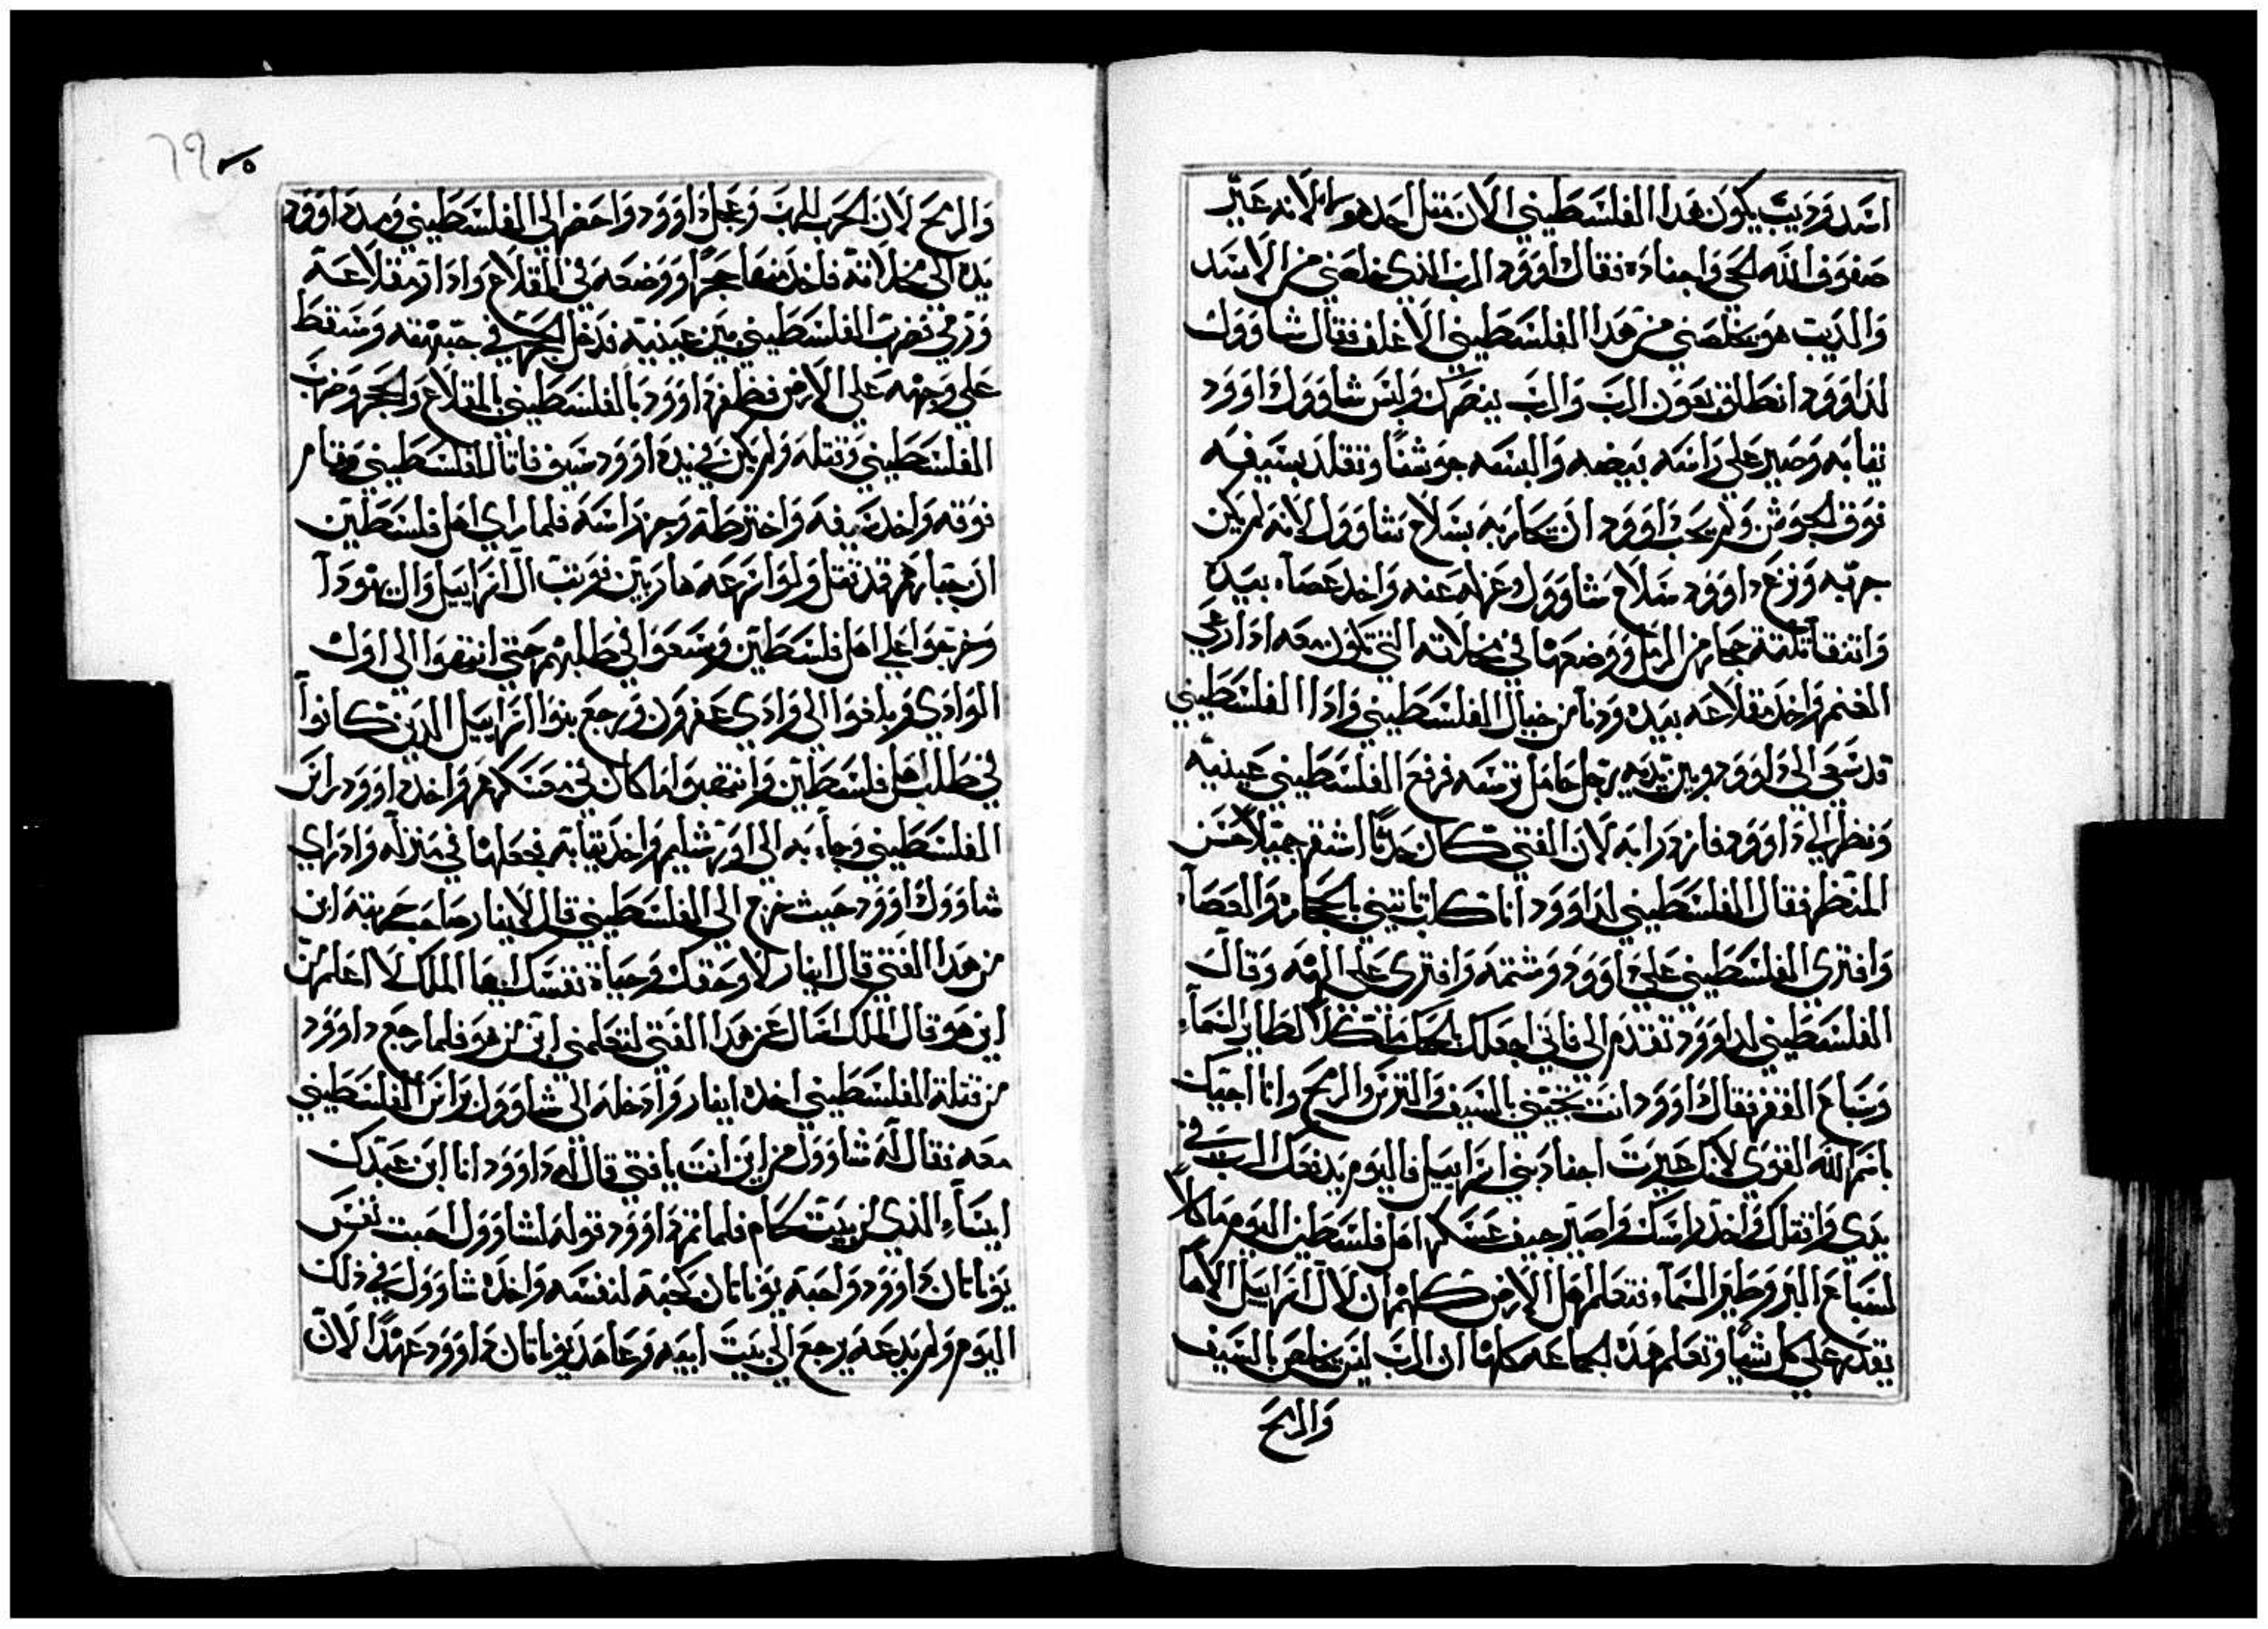 اسد وديب يكون هدا الفلسطيني الان مثل احدهم لانه عير
صفوف الله الحي واجناده فقال داوود الرب الذي خلصني من الاسد
والديب هو يخلصني من هدا الفلسطيني الاغلف فقال شاوول
لداوود انطلق بعون الرب والرب ينصرك والبس شاوول داوود
ثيابه وصير على راسه بيضه والبسه جوشنا وتقلد بسيفه
فوق الجوشن ولم يحب داوود ان يحاربه بسلاح شاوول لانه لم يكن
جربه ونزع داوود سلاح شاوول وعزله عنه واخد عصاه بيده
وانتقا ثلثة حجاره من الرمل ووضعها في مخلاته التي تكون معه ادا رعي
الغنم واخد مقلاعه بيده ودنا من خيال الفلسطيني وادا الفلسطيني
قد سعى الى داوود وبين يديه رجل حامل ترسه فرفع الفلسطيني عينيه
ونظر الي داوود فازدرا به لان الفتي كان حدثا اشقر جميلا حسن
المنظر فقال الفلسطيني لداوود انا كلب تاتيني بالحجاره والعصاه
وافترى الفلسطيني علي داوود وشتمه وافترى على الهه وقال
الفلسطيني لداوود تقدم الى فاني اجعلك لحمك ماكلا لطاير السماء
وسباع القفر فقال داوود انت تجيني بالسيف والترس والرمح وانا اجيك
باسم الله القوي لانك عيرت اجناد بني اسراييل فاليوم يدفعك الرب في
يدي واقتلك واخد راسك واصير جيف عسكر اهل فلسطين اليوم ماكلا
لسباع البر وطير السماء فتعلم اهل الارض كلهم ان لال اسراييل الاها
يقدر على كل شيا وتعلم هذه الجماعه كلها ان الرب ليس يخلص بالسيف
والرمح
٦٩
والرمح لان الحرب للرب وعجل داوود واحضر الى الفلسطيني ومد داوود
يده الى مخلاته فاخد منها حجرا ووضعه في المقلاع وادار مقلاعه
ورمي فضرب الفلسطيني بين عينيه فدخل الحجر في جبهته وسقط
على وجهه على الارض فظفر داوود بالفلسطيني بالمقلاع والحجر وضرب
الفلسطيني وقتله ولم يكن في يد داوود سيف فاتا الفلسطيني وقام
فوقه واخد سيفه واخترطه وجز راسه فلما راي اهل فلسطين
ان جبارهم قد قتل ولوا نزعه هاربين فوثب ال اسراييل وال يهودا
وخرجوا على اهل فلسطين وسعوا في طلبهم حتي انتهوا الى اول
الوادي وبلغوا الى وادي عفرون ورجع بنوا اسراييل الدين كانوا
في طلب اهل فلسطين وانتهبوا ما كان في معسكرهم واخد داوود راس
الفلسطيني وجاء به الى اورشليم واخد ثيابه فجعلها في منزله واد راي
شاوول داوود حيث خرج الى الفلسطيني قال لابنار صاحب حربته ابن
من هدا الفتي قال ابنار لا وحقك وحياة نفسك ايها الملك لا اعلم من
ابن هو قال الملك اسال عن هدا الفتي لتعلمني ابن من هو فلما رجع داوود
من قتلة الفلسطيني اخده ابنار وادخله الى شاوول وراس الفلسطيني
معه فقال له شاوول من اين انت يا فتي قال له داوود انا ابن عبدك
ايساء الذي من بيت لحام فلما تم داوود قوله لشاوول احبت نفس
يوناتان داوود واحبه يوناتان كحبه لنفسه واخده شاوول في ذلك
اليوم ولم يدعه يرجع الى بيت ابيه وعاهد يوناتان داوود عهدا لان